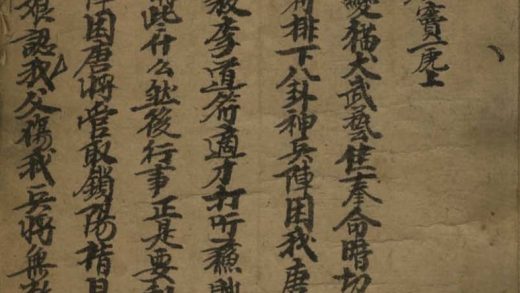 竇一虎上
猫犬武藝佳奉命時切
排下八卦神兵陣困我唐
教李道符適才打听
此什么然後行事正是要
陣困唐將管取鎖陽指日
娘認我父傷我兵將無数